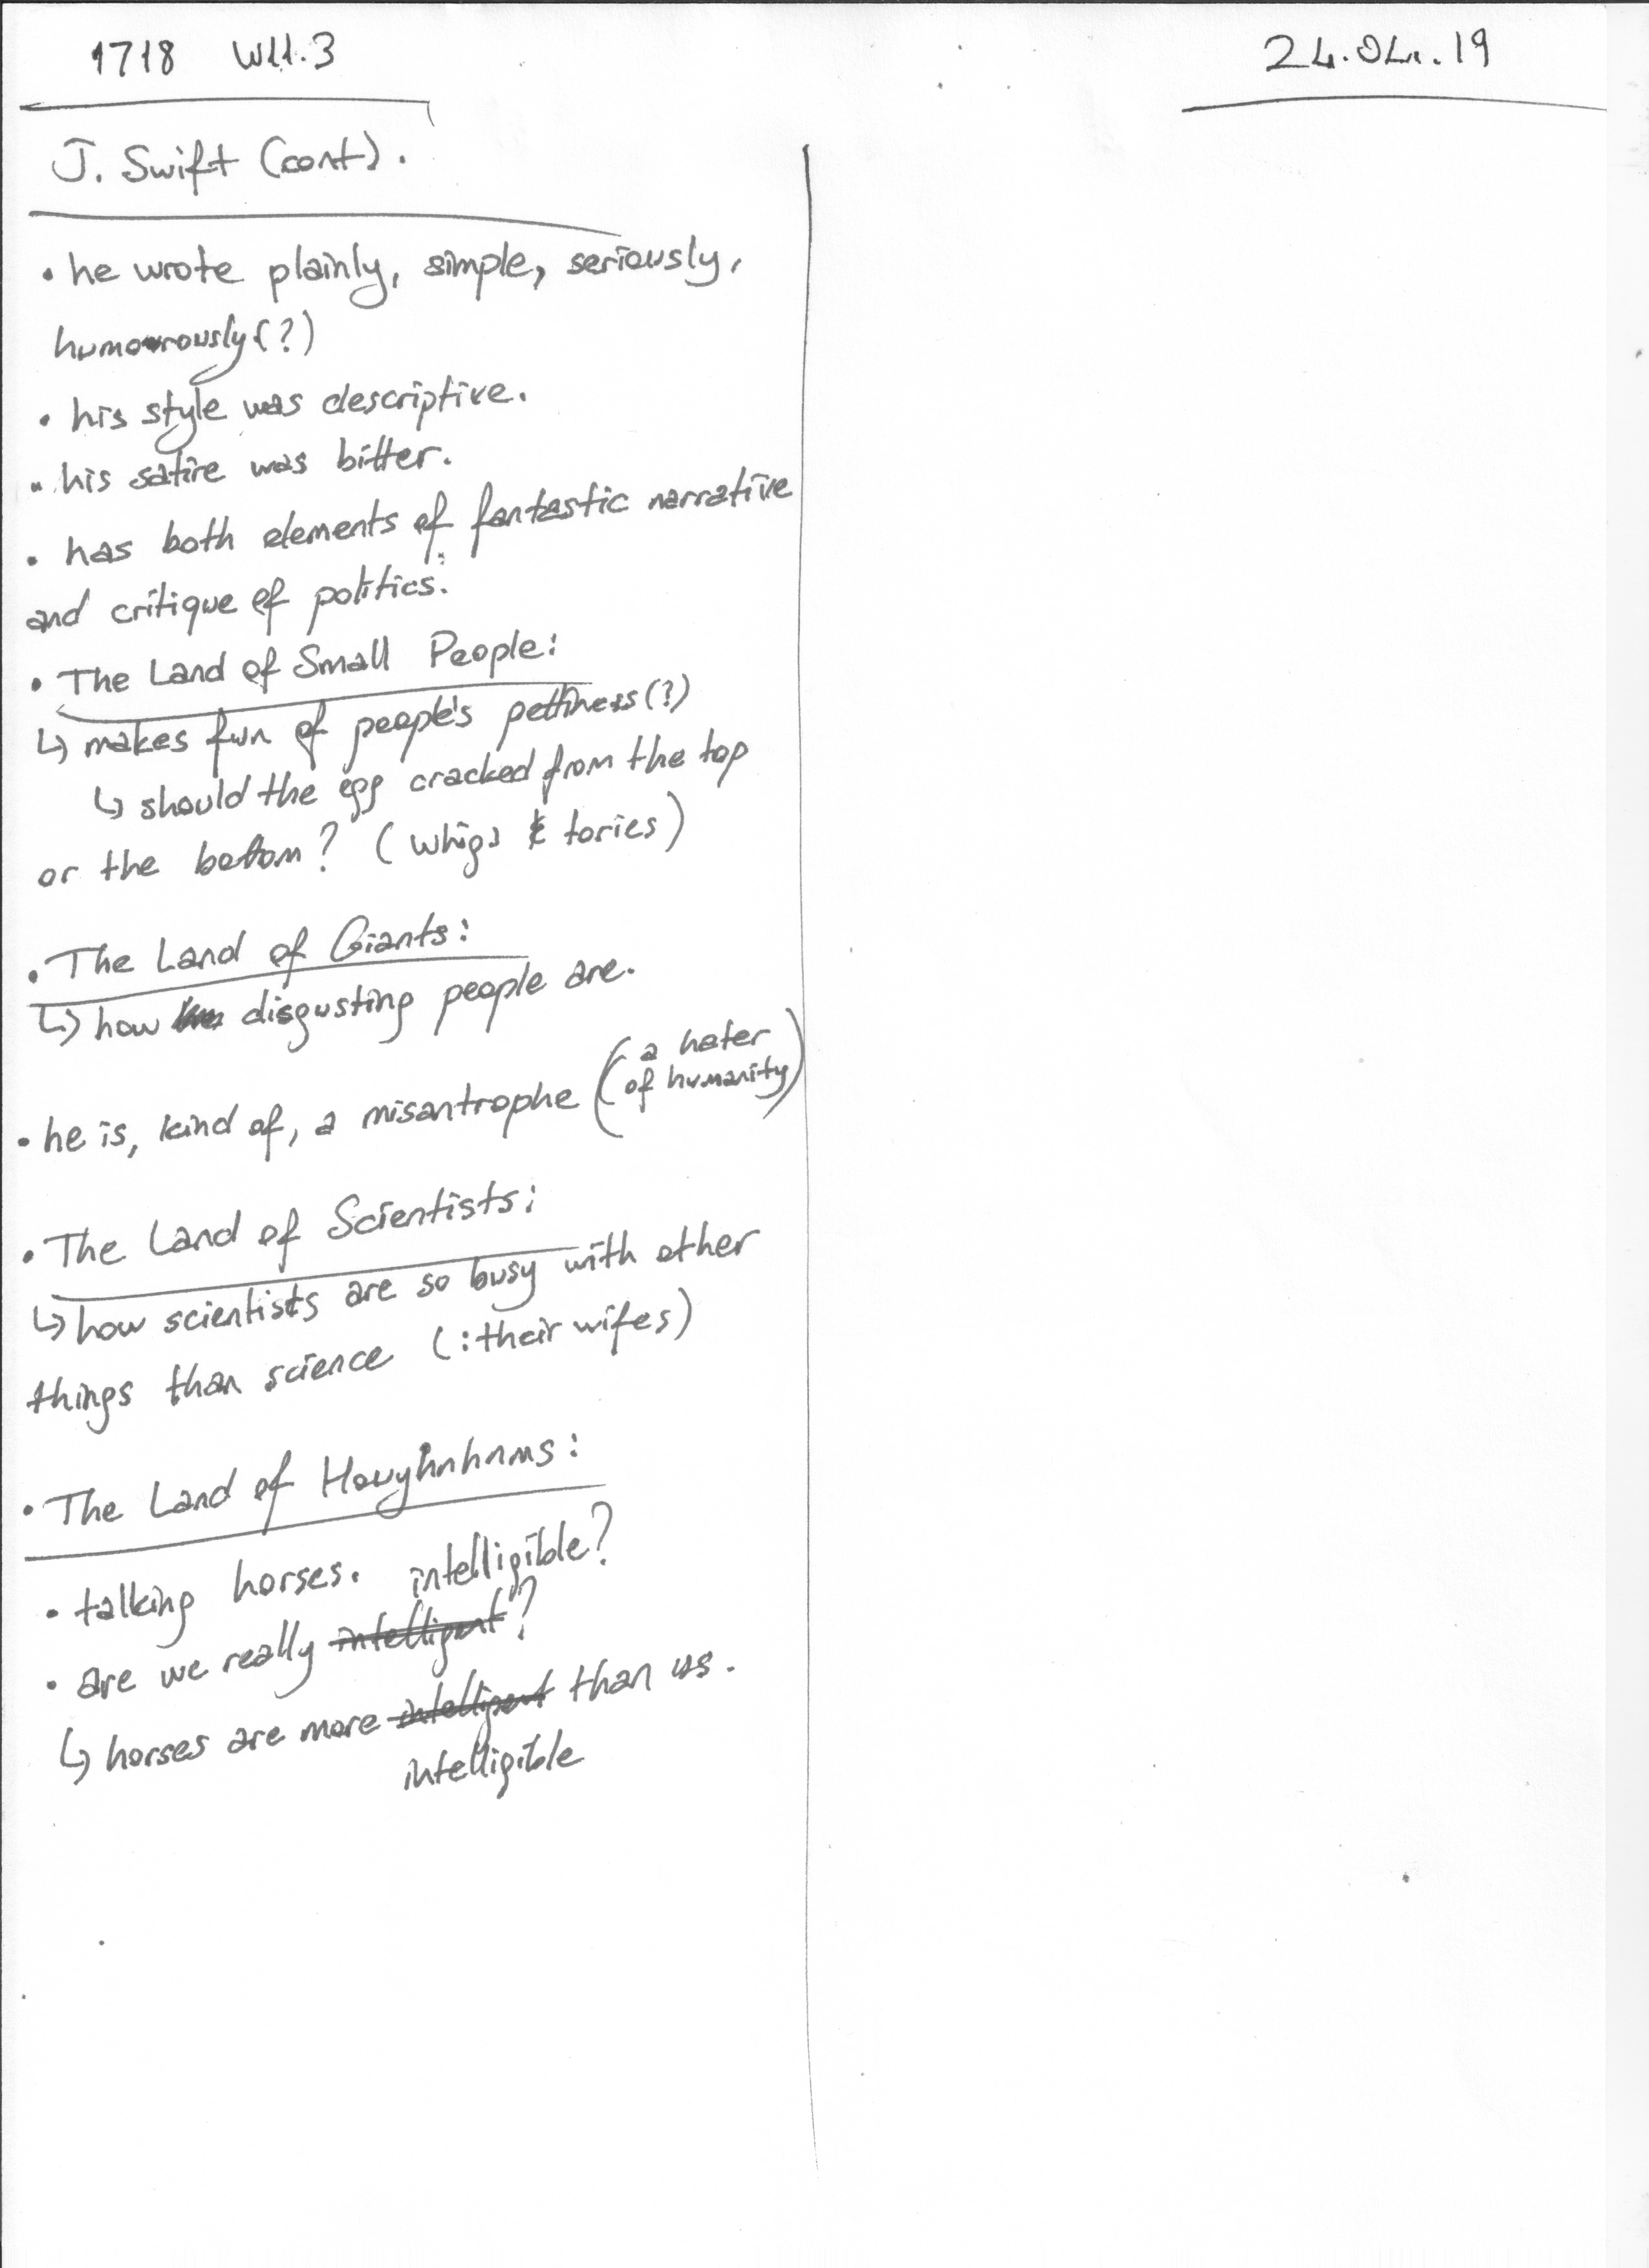 1718 W11.3
24.04.19
J. Swift (cont).
• he wrote plainly, simple, seriously,
humorously (?)
• his style was descriptive.
• his satire was bitter.
• has both elements of fantastic narrative
and critique of politics.
• The Land of Small People:
↳ makes fun of people's pettiness (?)
↳ should the egg cracked from the top
or the bottom? (whigs & tories)
• The Land of Giants:
↳ how disgusting people are.
• he is, kind of, a misantrophe (a hater
of humanity)
• The Land of Scientists:
↳ how scientists are so busy with other
things than science (: their wifes)
• The Land of Houyhnhnms:
• talking horses.
intelligible?
• are we really intelligent?
↳ horses are more intelligent than us.
intelligible